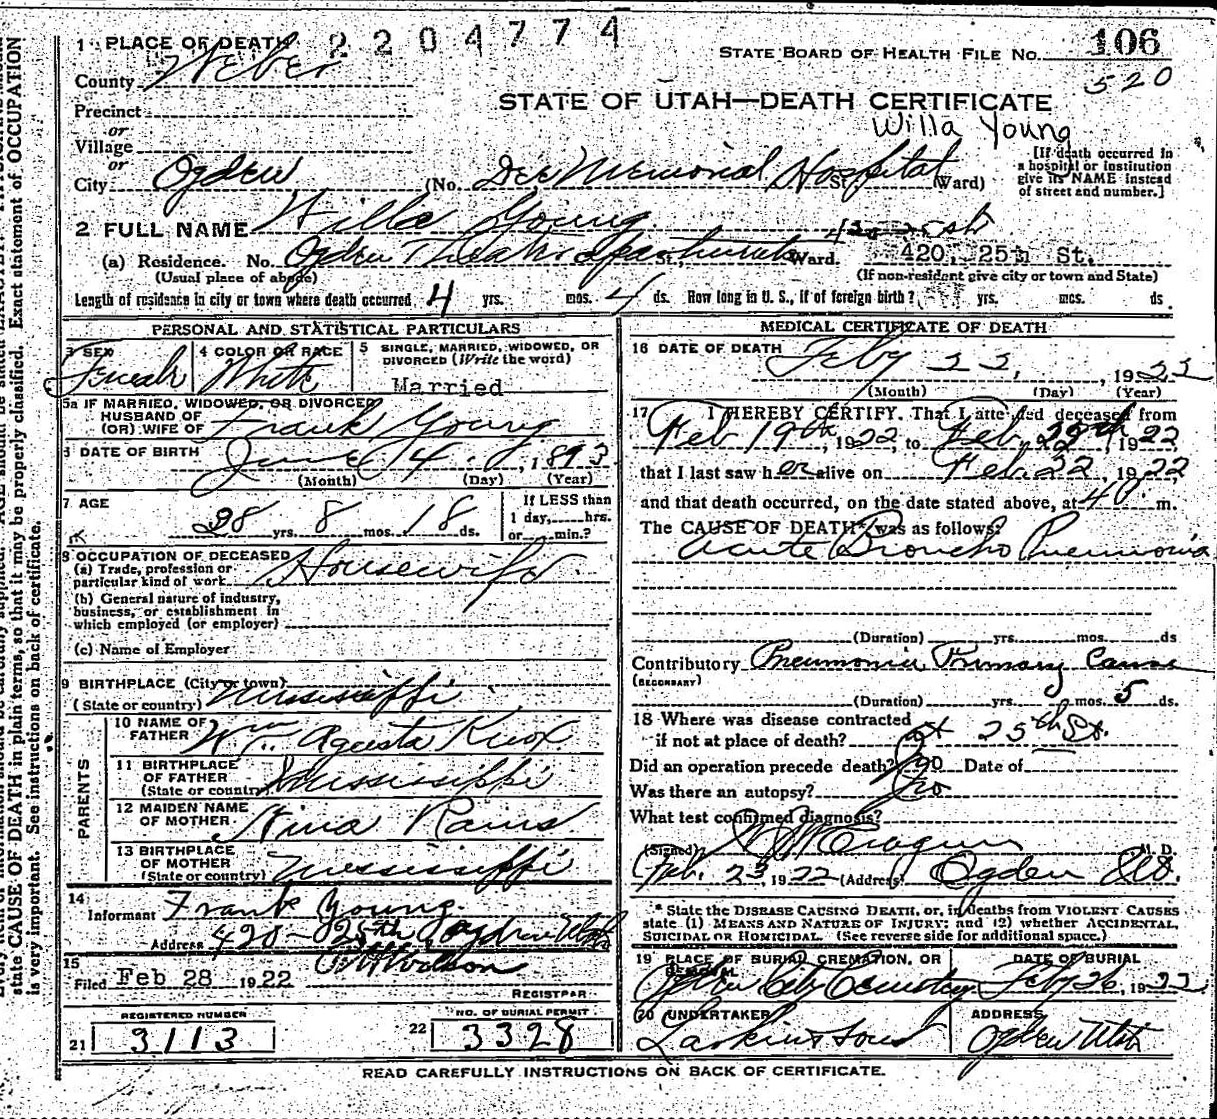 2204774
1 PLACE OF DEATH
STATE BOARD OF HEALTH FILE NO. 106
County Weber
520
STATE OF UTAH—DEATH CERTIFICATE
Precinct
Willa Young
or
Village
or
City Ogden (No. Dee Memorial Hospital St. Ward)
[If death occurred in
a hospital or institution
give its NAME instead
of street and number.]
2 FULL NAME Willa Young
(a) Residence. No. Ogden Theatre Apartments St., Ward. 420, 25th St.
(Usual place of abode) (If non-resident give city or town and State)
Length of residence in city or town where death occurred 4 yrs. mos. 4 ds. How long in U. S., if of foreign birth? yrs. mos. ds.
PERSONAL AND STATISTICAL PARTICULARS
3 SEX Female
4 COLOR OR RACE White
5 SINGLE, MARRIED, WIDOWED, OR
DIVORCED (Write the word)
Married
5a IF MARRIED, WIDOWED, OR DIVORCED
HUSBAND OF
(OR) WIFE OF Frank Young
6 DATE OF BIRTH June 4, 1893
(Month) (Day) (Year)
7 AGE 28 yrs. 8 mos. 18 ds.
If LESS than
1 day, hrs.
or min.?
8 OCCUPATION OF DECEASED
(a) Trade, profession or
particular kind of work Housewife
(b) General nature of industry,
business, or establishment in
which employed (or employer)
(c) Name of Employer
9 BIRTHPLACE (City or town)
(State or country) Mississippi
PARENTS
10 NAME OF
FATHER Wm. Agusta Knox
11 BIRTHPLACE
OF FATHER
(State or country) Mississippi
12 MAIDEN NAME
OF MOTHER Nina
13 BIRTHPLACE
OF MOTHER
(State or country) Mississippi
14
Informant Frank Young.
Address 420 - 25th Ogden Utah
15
Filed Feb 28 1922
REGISTRAR
REGISTERED NUMBER
21 3113
NO. OF BURIAL PERMIT
22 3328
MEDICAL CERTIFICATE OF DEATH
16 DATE OF DEATH Feby 22, 1922
(Month) (Day) (Year)
17 I HEREBY CERTIFY, That I attended deceased from
Feb 19th, 1922, to Feb. 1922,
that I last saw her alive on Feb. 22, 1922,
and that death occurred, on the date stated above, at m.
The CAUSE OF DEATH* was as follows:
Acute Broncho Pneumonia
(Duration) yrs. mos. ds
Contributory Pneumonia Primary Cause
(SECONDARY)
(Duration) yrs. mos. 5 ds.
18 Where was disease contracted
if not at place of death? at 25th St.
Did an operation precede death? No Date of
Was there an autopsy? No
What test confirmed diagnosis?
(Signed) M. D.
Feb. 23, 1922 (Address) Ogden
* State the DISEASE CAUSING DEATH, or, in deaths from VIOLENT CAUSES
state (1) MEANS AND NATURE OF INJURY; and (2) whether ACCIDENTAL,
SUICIDAL OR HOMICIDAL. (See reverse side for additional space.)
19 PLACE OF BURIAL, CREMATION, OR
REMOVAL
Ogden City Cemetery
DATE OF BURIAL
Feby 26, 1922
20 UNDERTAKER
Larkin & Sons
ADDRESS
Ogden Utah
READ CAREFULLY INSTRUCTIONS ON BACK OF CERTIFICATE.
state CAUSE OF DEATH in plain terms, so that it may be properly classified. Exact statement of OCCUPATION
is very important. See instructions on back of certificate.